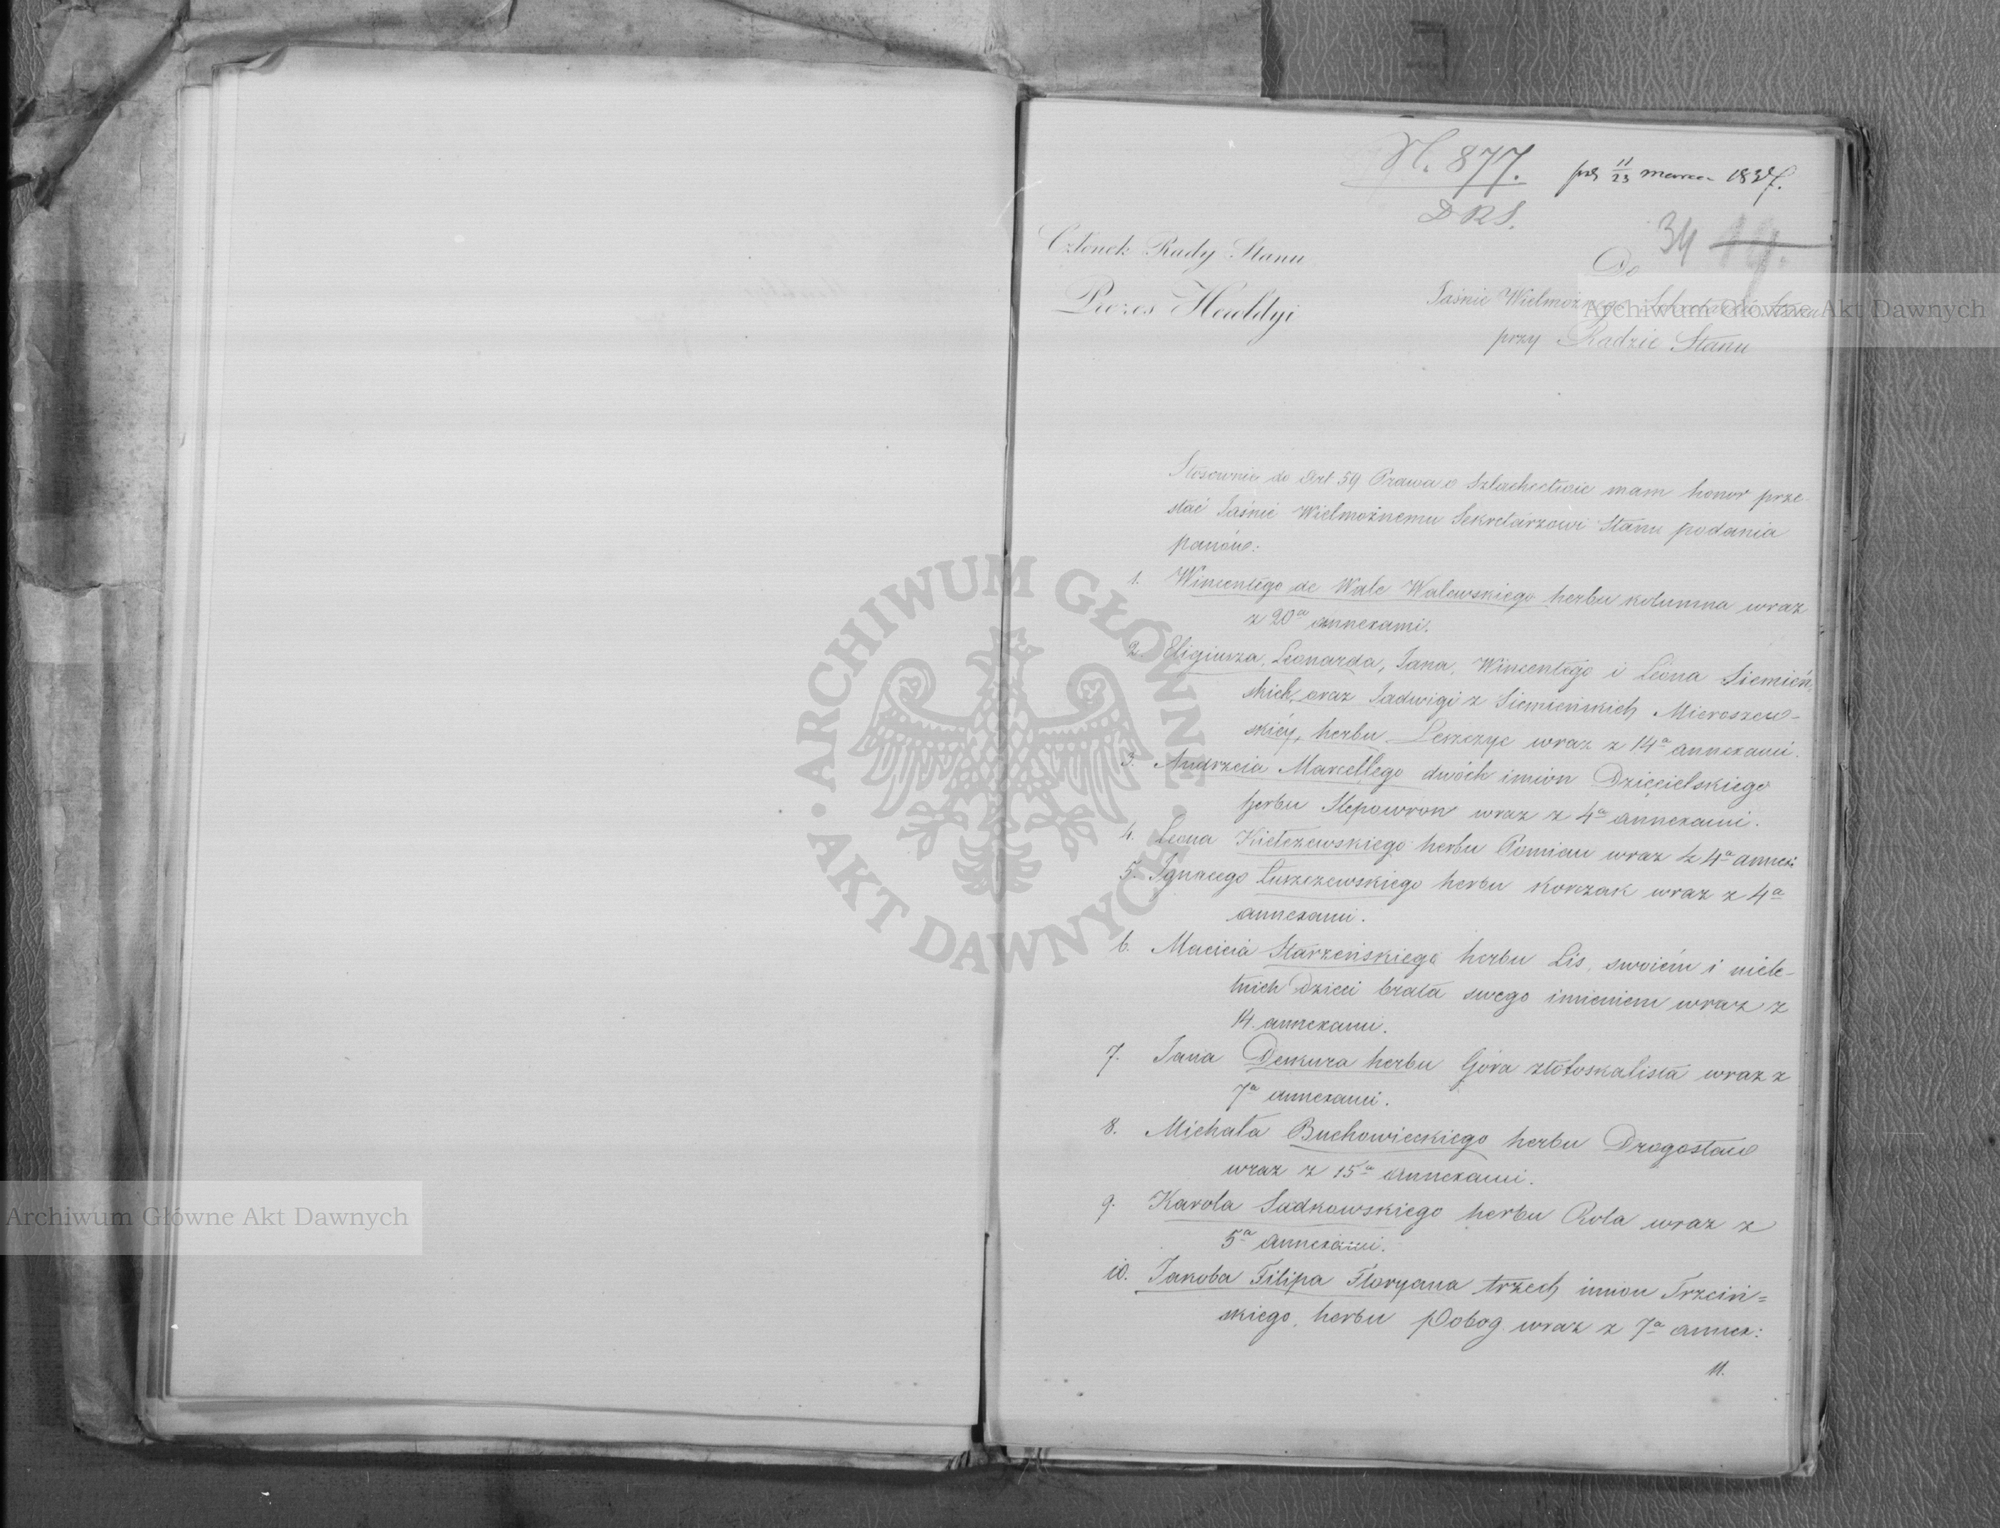 N. 877.
D R S.
prs 11/23 marca 1837.
34 19.
Członek Rady Stanu
Prezes Heroldyi
Do
Jaśnie Wielmożnego Sekretarza Stanu
przy Radzie Stanu
Stosownie do Art 59 Prawa o Szlachectwie mam honor prze
słać Jaśnie Wielmożnemu Sekretarzowi Stanu podania
panów:
1. Wincentego de Wale Walewskiego herbu Kolumna wraz
z 20a annexami.
2. Eligiusza, Leonarda, Jana, Wincentego i Leona Siemień
skich, oraz Jadwigi z Siemieńskich Mieroszew-
skiéy, herbu Leszczyc wraz z 14a annexami.
3. Andrzeia Marcellego dwóch imion Dzięcielskiego
herbu Slepowron wraz z 4a annexami.
4. Leona Kiełczewskiego herbu Pomian wraz z 4a annex:
5. Ignacego Łuszczewskiego herbu Korczak wraz z 4a
annexami.
6. Macieia Starzeńskiego herbu Lis, swoiém i niele-
tnich Dzieci brata swego imieniem wraz z
14 annexami.
7. Jana Denkura herbu Góra złotoskalista wraz z
7a annexami.
8. Michała Buchowieckiego herbu Drogosław
wraz z 15a annexami.
9. Karola Sadkowskiego herbu Rola wraz z
5a annexami.
10. Jakoba Filipa Floryana trzech imion Trzciń=
skiego, herbu Pobog wraz z 7a annex:
11.
Archiwum Główne Akt Dawnych
Archiwum Główne Akt Dawnych
ARCHIWUM GŁÓWNE · AKT DAWNYCH ·